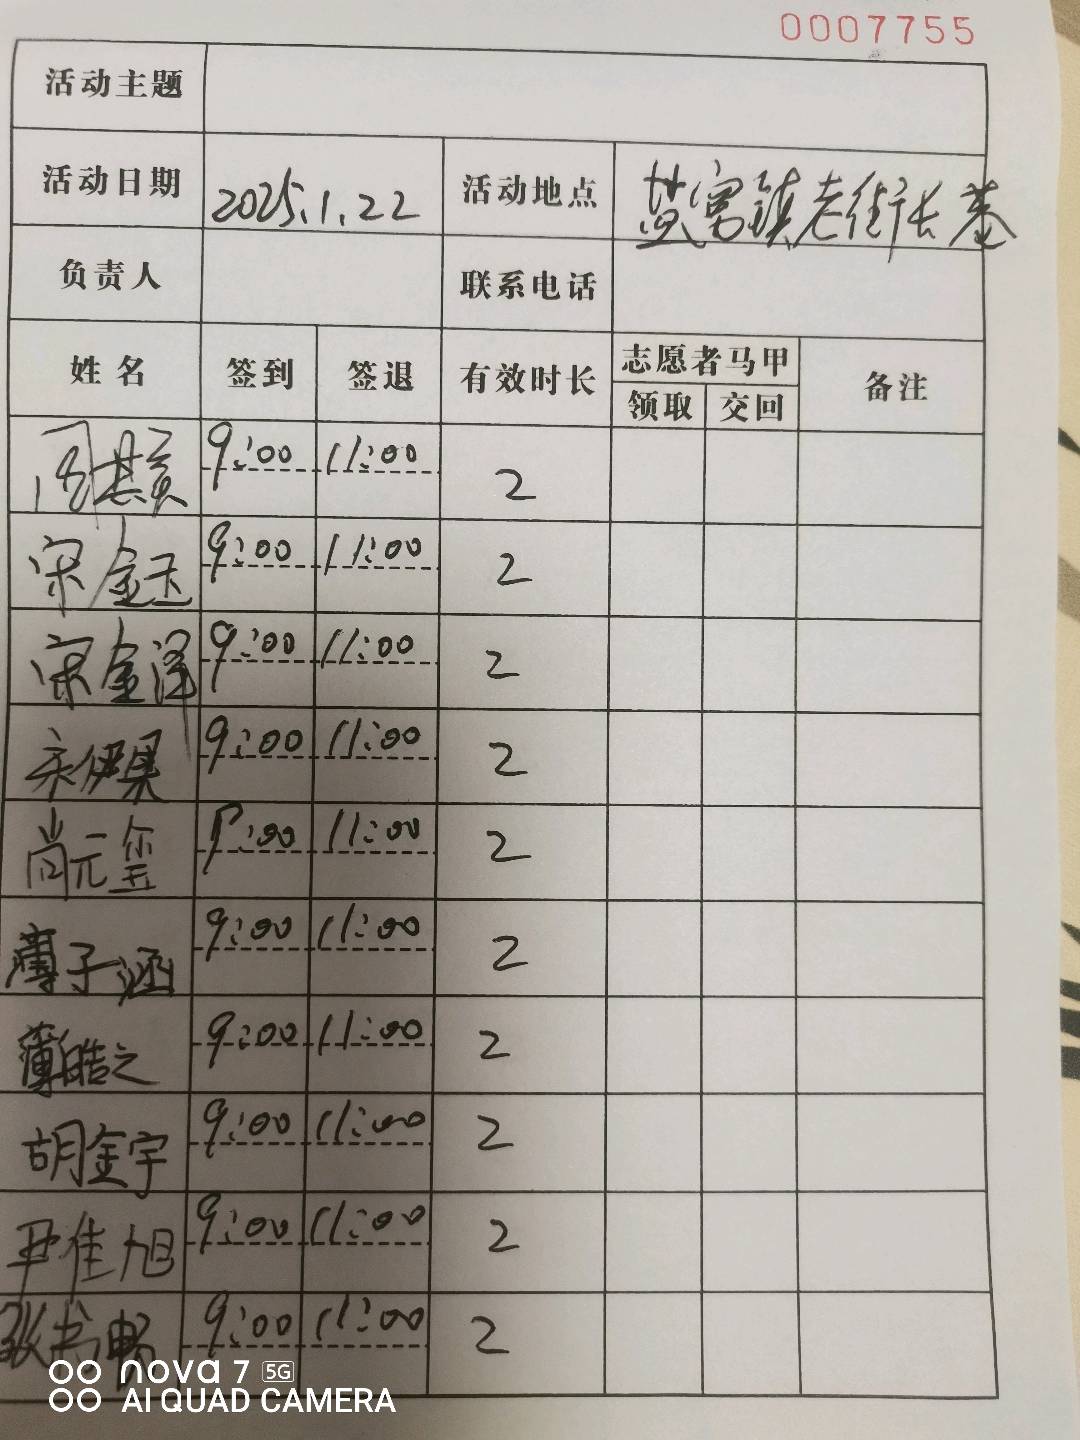 0007755
活动主题
活动日期 2025.1.22 活动地点 镇老街长巷
负责人 联系电话
姓名 签到 签退 有效时长 志愿者马甲 备注
领取 交回
周其 9:00 11:00 2
宋金玉 9:00 11:00 2
宋金泽 9:00 11:00 2
伊果 9:00 11:00 2
尚元玺 9:00 11:00 2
薄子涵 9:00 11:00 2
薄皓之 9:00 11:00 2
胡金宇 9:00 11:00 2
尹佳旭 9:00 11:00 2
张书畅 9:00 11:00 2
nova 7 5G
AI QUAD CAMERA